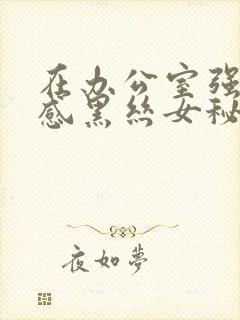 在办公室强
感黑丝女秘
夜如夢